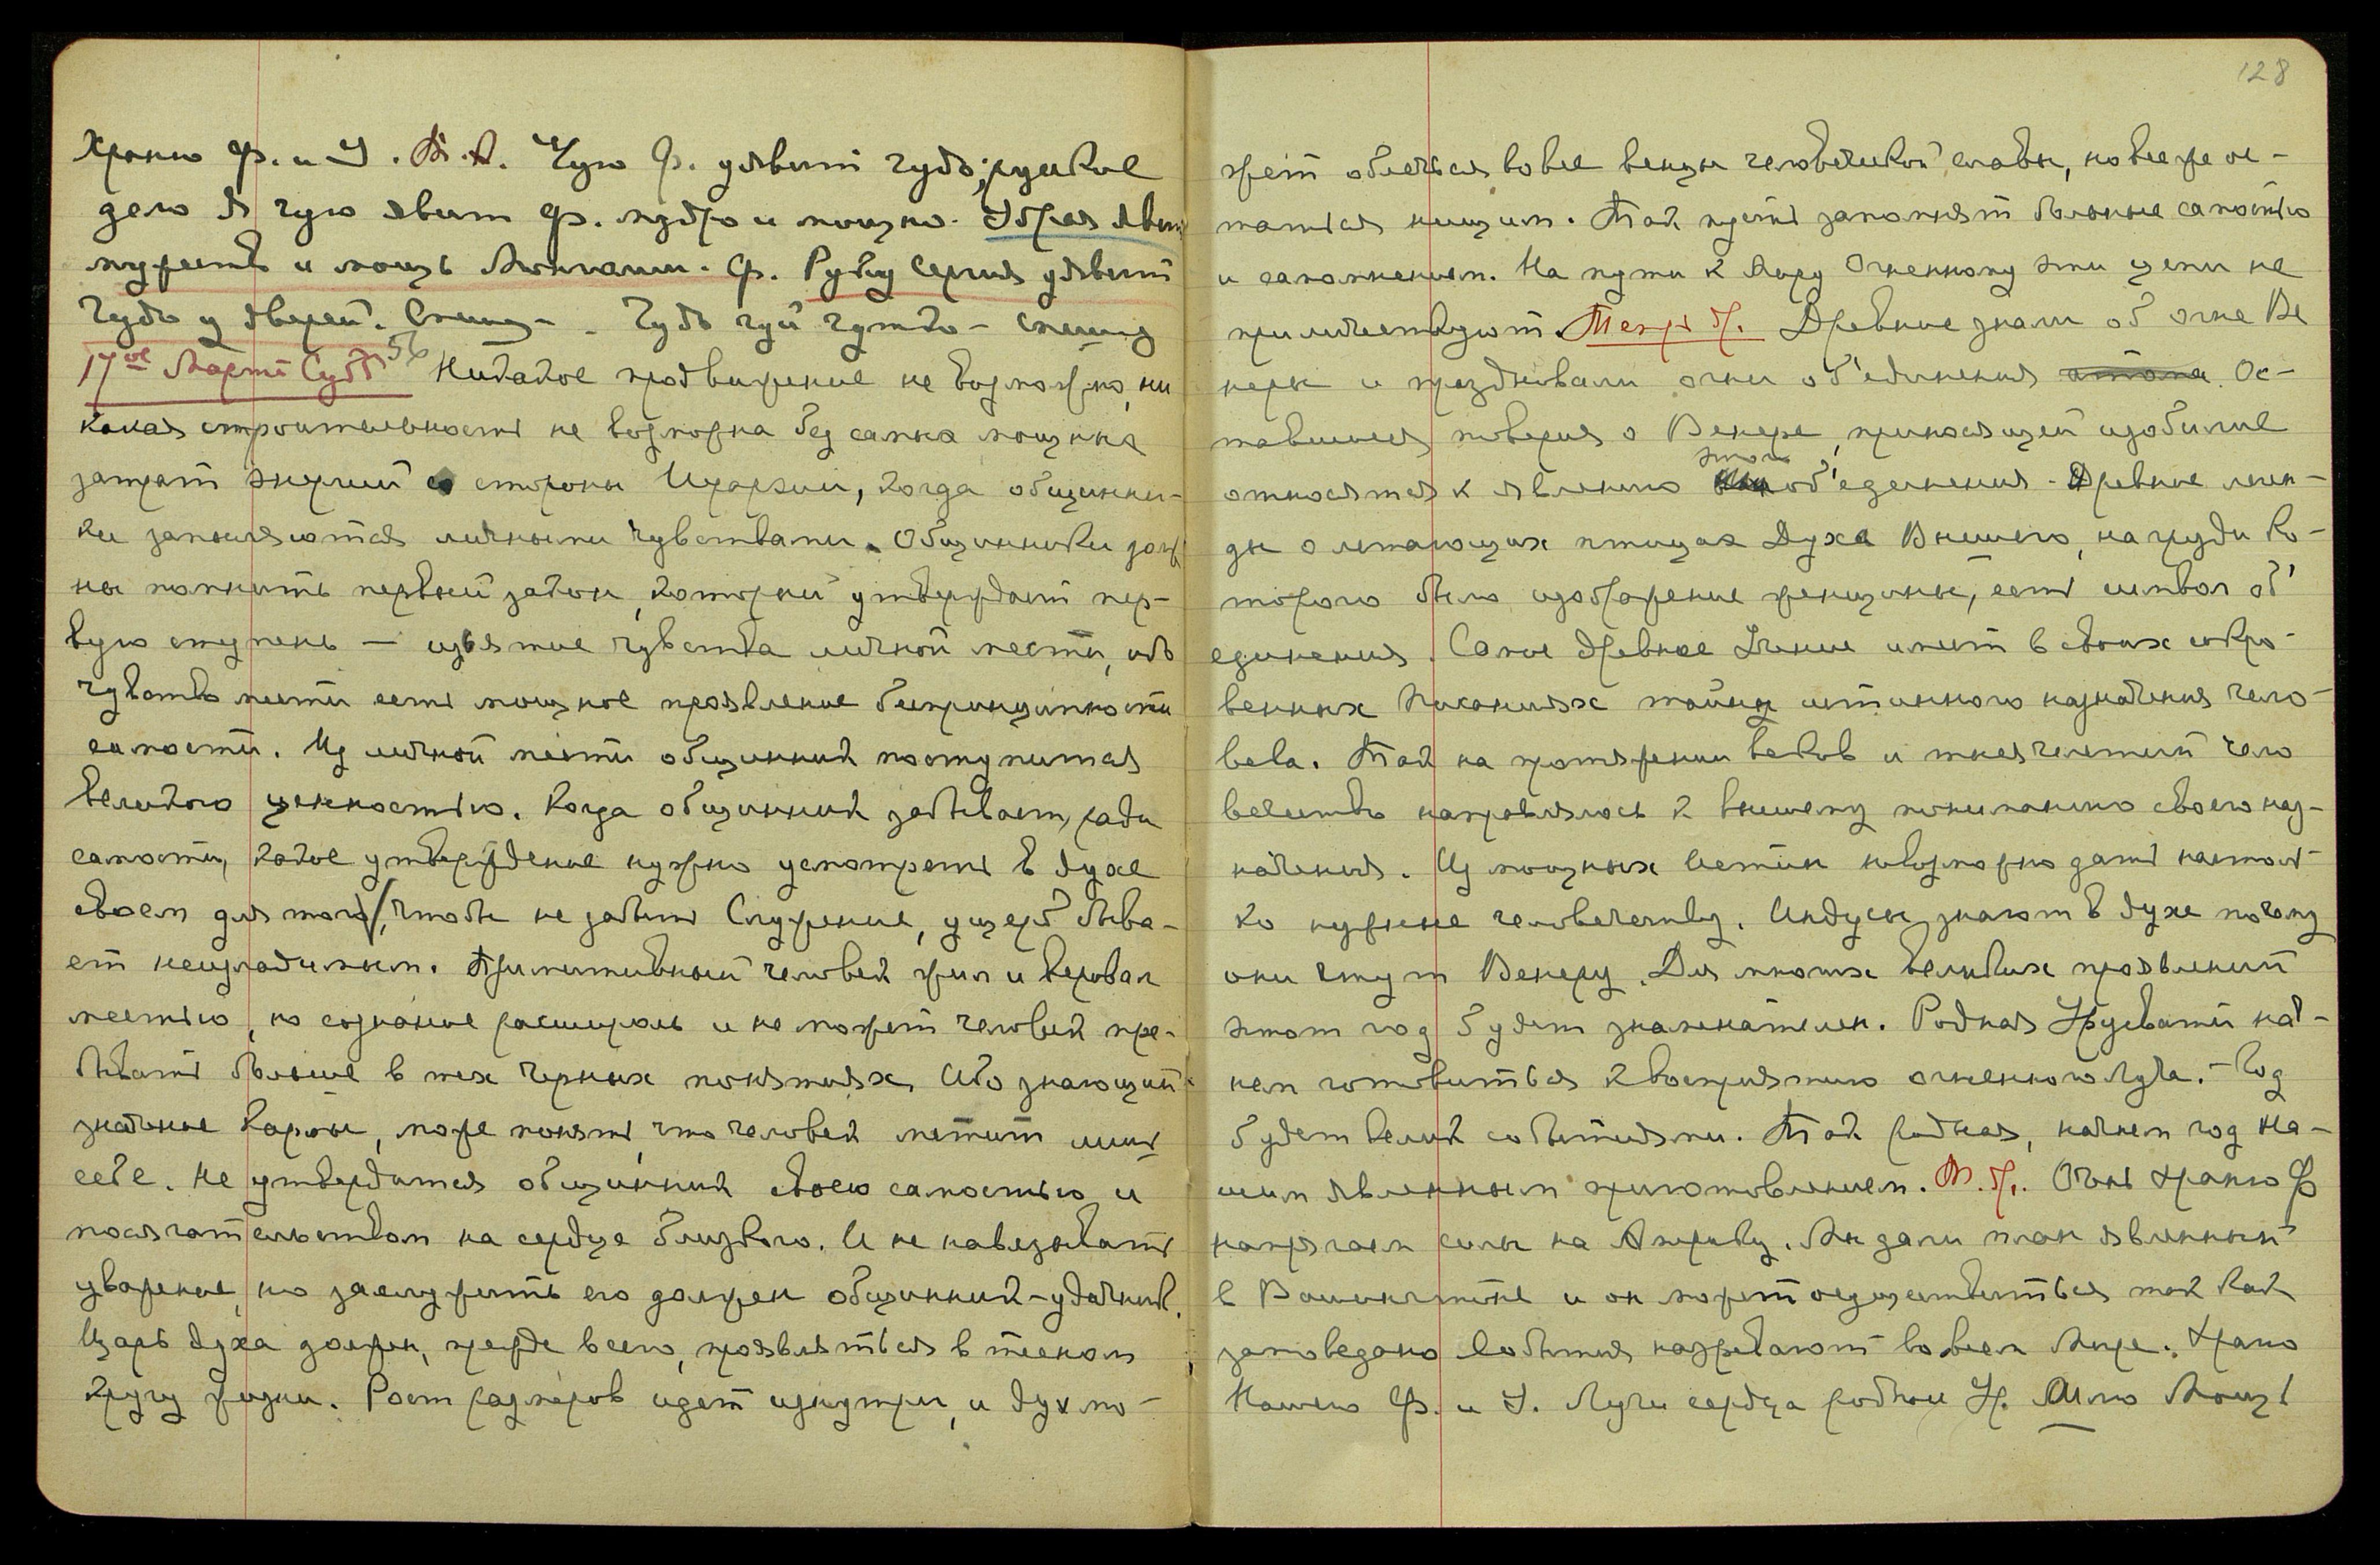 Храню Ф. и У. В. А. Чую Ф. удвит чудо; русское
дело Я чую явит Ф. мудро и мощно. Убрая явит
мудрость и мощь Ф. Рубку Сергия удвит
Чудо у дверей. Спешу – . Чудо чуй чутко – Спешу
17ое Марта Субб 56 Никакое продвижение не возможно, ни
какая строительность не возможна без самых мощных
затрат энергии со стороны Иерархии, когда общинни-
ки запыляются личными чувствами. Общинники долж
ны помнить первый закон, который утверждает пер-
вую ступень – изъятие чувства личной мести, ибо
чувство мести есть мощное проявление беспринципности
самости. Из личной мести общинник поступится
великою ценностью. Когда общинник забывает, ради
самости, какое утверждение нужно усмотреть в духе
своем для того, чтобы не забыть Служение, ущерб быва-
ет неизгладимым. Примитивный человек жил и веровал
местью, но сознание расширялось и не может человек пре-
бывать больше в тех черных понятиях. Ибо знающий
значение Кармы, може понять, что человек метит лишь
себе. Не утвердится общинник своею самостью и
посягательством на сердце близкого. И не навязывать
уважение, но заслужить его должен общинник-удачник.
Царь духа должен, прежде всего, проявляться в тесном
кругу жизни. Рост размеров идет изнутри, и дух мо-
128
жет облечься во все венцы человеческой славы, но все же ос-
таться нищим. Так пусть запомнят больные самостью
и самомнением. На пути к Миру Огненному эти цепи не
приличествуют. Матерь М. Древние знали об огне Ве
неры и праздновали огни об'единения атома. Ос-
тавшиеся поверия о Венере, приносящей изобилие
относятся к явлению этого об'единения. Древние леген-
ды о летающих птицах Духа Высшего, на груди ко-
торого было изображение женщины, есть символ об'
единения. Самое древнее Учение имеет в своих сокро-
венных Писаниях тайну истинного назначения чело-
века. Так на протяжении веков и тысячелетий чело
вечество направлялось к высшему пониманию своего наз-
начения. Из мощных Истин невозможно дать настоль-
ко нужные человечеству. Индусы знают в духе почему
они чтут Венеру. Для многих великих проявлений
этот год будет знаменателен. Родная Урусвати нач-
нем готовиться к восприятию огненного Луча. – Год
будет велик событиями. Так родная, начнем год На-
шим явленным приготовлением. М. М. Очень храню Ф
напрягаем силы на Америку. Мы дали план явленный
в Вашингтоне и он может осуществиться так как
заповедано. События назревают во всем Мире. Храню
Нашего Ф. и У. Лучи сердца родной У. Шлю Мощь